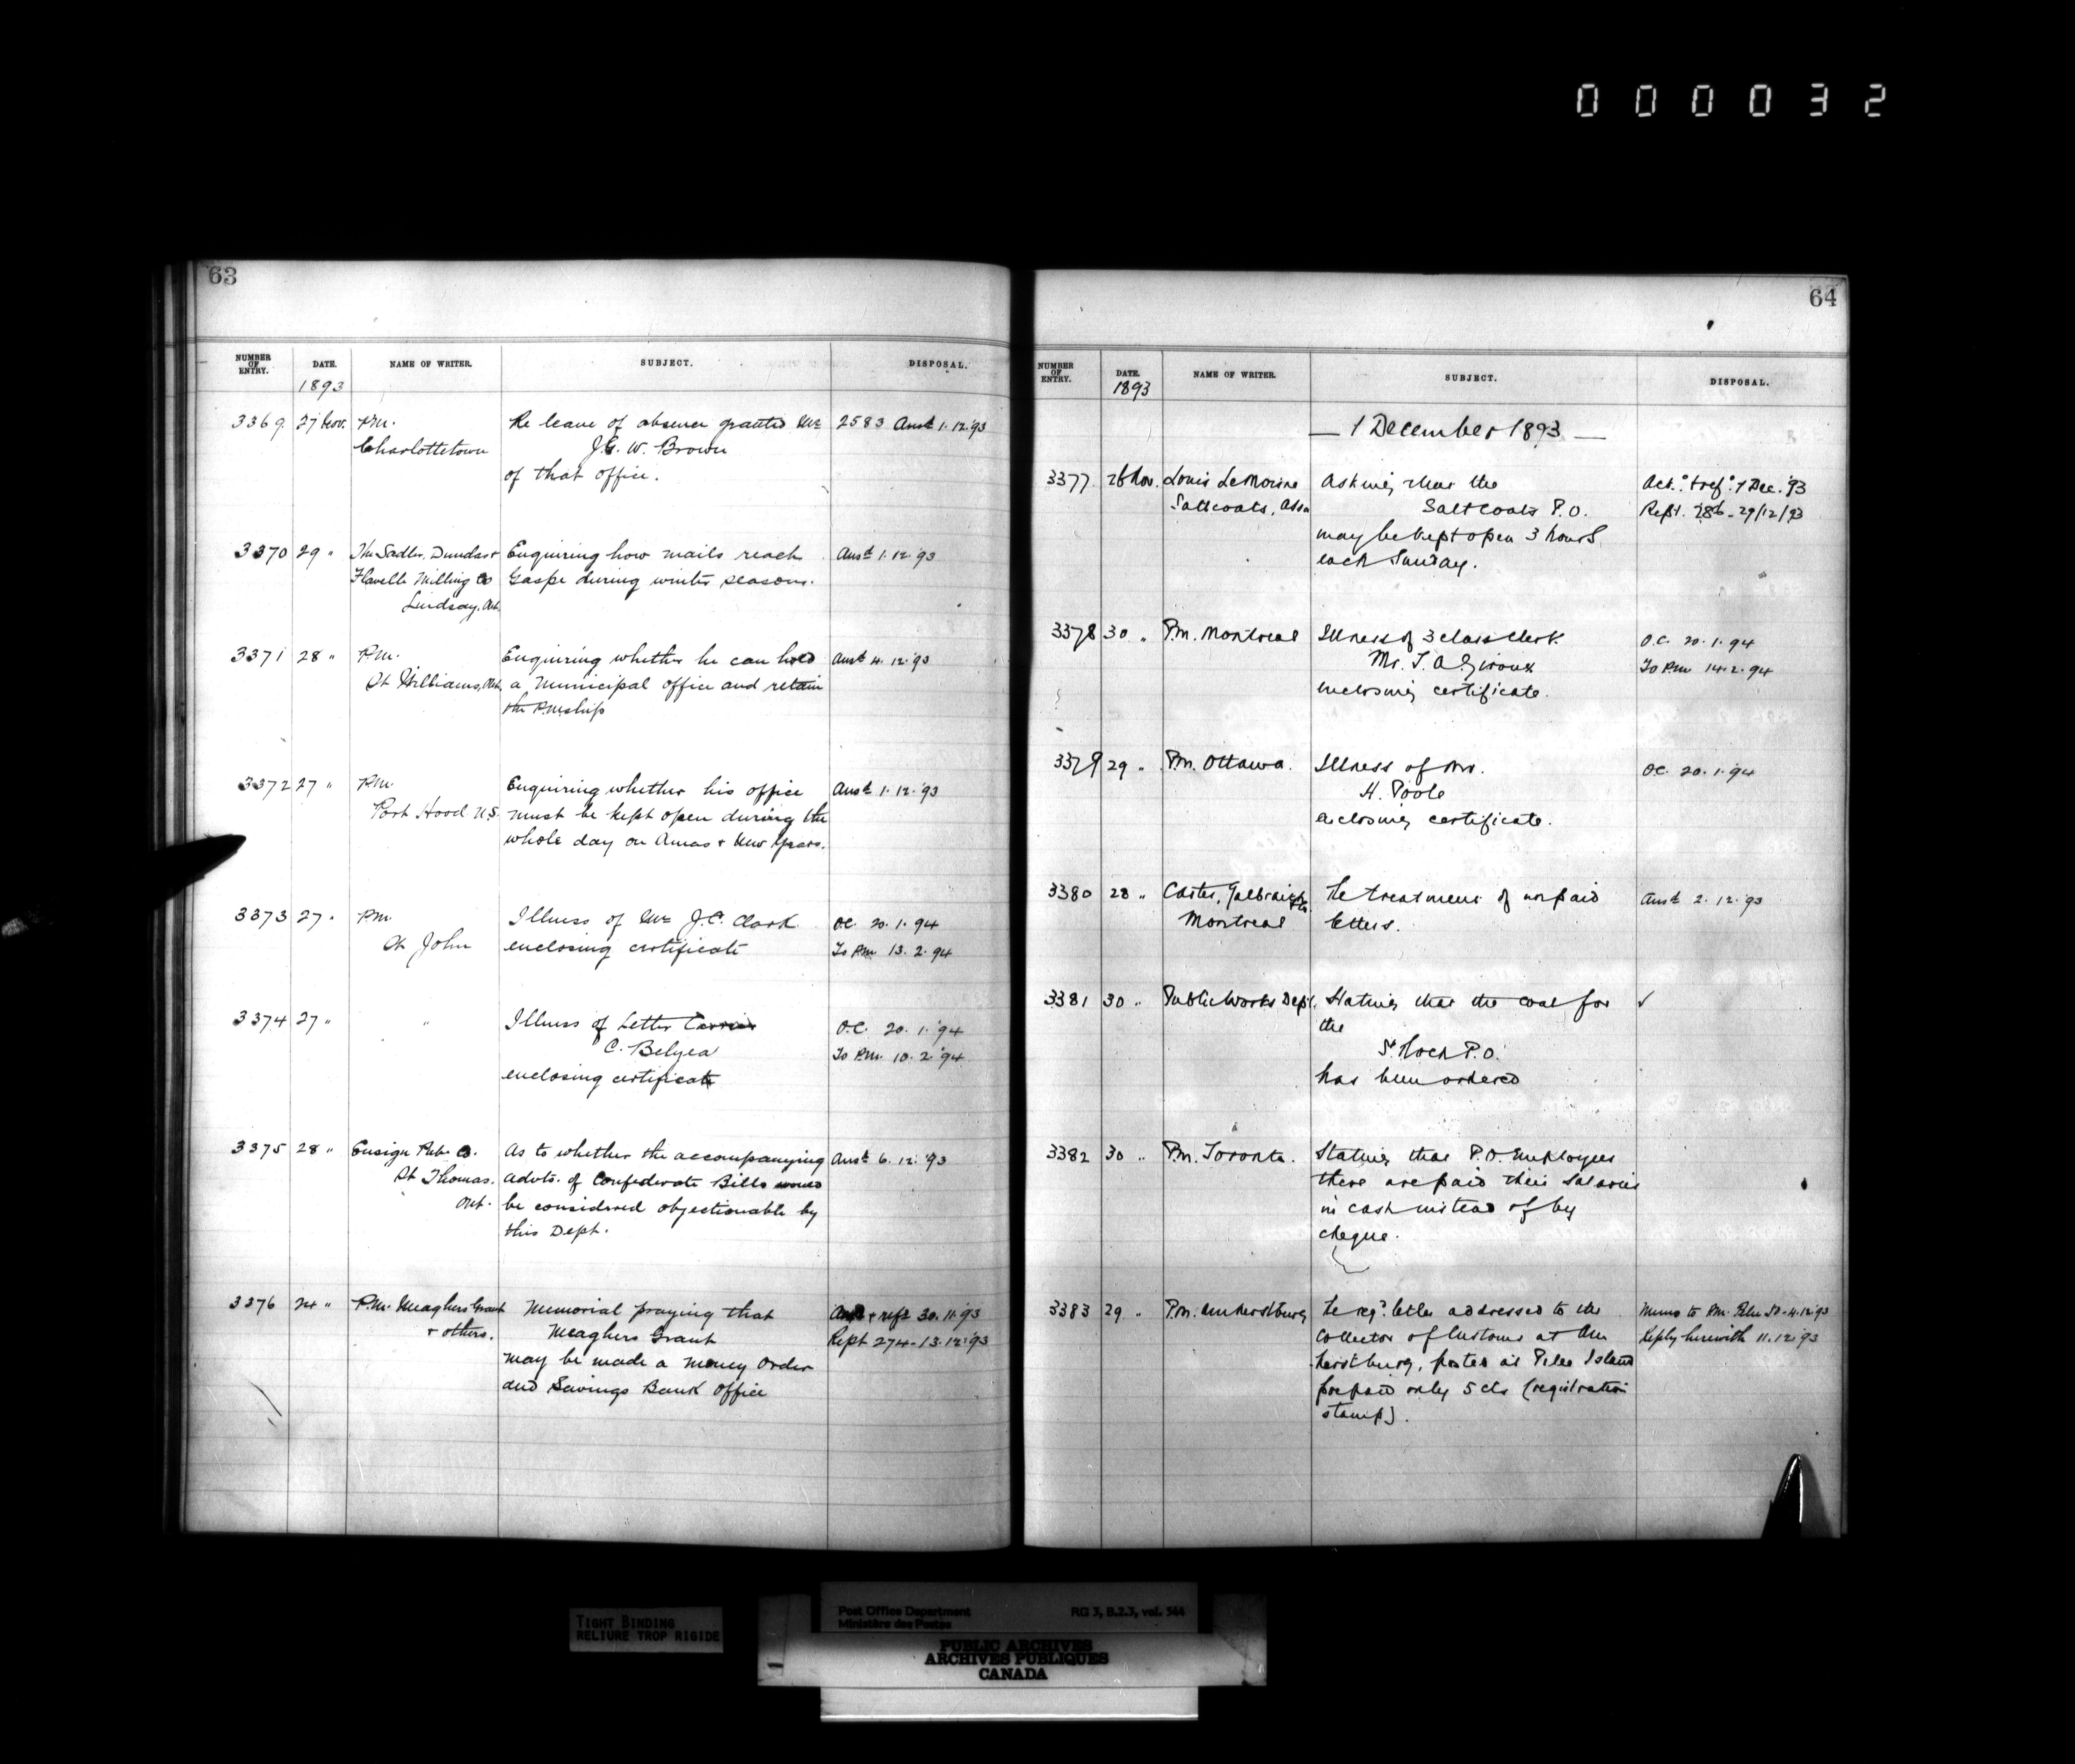 000032
63
NUMBER OF ENTRY. DATE. NAME OF WRITER. SUBJECT. DISPOSAL.
1893
3369 27 Nov. P.M. Re leave of absence granted Mr 2583 Ansd 1.12.'93
Charlottetown J.G. W. Brown
of that office.
3370 29 " The Sadler, Dundas & Enquiring how mails reach Ansd 1.12.'93
Flavelle Milling Co Gaspe during winter seasons.
Lindsay, Ont.
3371 28 " P.M. Enquiring whether he can hold Ansd 4.12.'93
St Williams, Ont. a Municipal office and retain
the P.Mship
3372 27 " P.M. Enquiring whether his office Ansd 1.12.'93
Port Hood N.S. must be kept open during the
whole day on Xmas & New Years.
3373 27 " P.M. Illness of Mr J.C. Clark O.C. 20.1.94
St John enclosing certificate To P.M. 13.2.94
3374 27 " " Illness of Letter Carrier O.C. 20.1.'94
C. Belyea To P.M. 10.2.'94
enclosing certificate
3375 28 " Ensign Pub. Co. As to whether the accompanying Ansd 6.12.'93
St Thomas. advts. of Confederate Bills would
Ont. be considered objectionable by
this Dept.
3376 24 " P.M. Meaghers Grant Memorial praying that Ansd & refd 30.11.'93
& others. Meaghers Grant Rept 274-13.12.'93
may be made a Money Order
and Savings Bank Office
64
NUMBER OF ENTRY. DATE. NAME OF WRITER. SUBJECT. DISPOSAL.
1893
— 1 December 1893 —
3377 28 Nov. Louis LeMoine Asking that the Act. & ref. 1 Dec. '93
Saltcoats, Assa Saltcoats P.O. Rept. 286-29/12/93
may be kept open 3 hours
each Sunday.
3378 30 " P.M. Montreal Illness of 3 class Clerk O.C. 20.1.94
Mr. T. A. Giroux To P.M. 14.2.94
enclosing certificate.
3379 29 " P.M. Ottawa. Illness of Mr. O.C. 20.1.'94
H. Poole
enclosing certificate.
3380 28 " Carter, Galbraith & Co. Re treatment of unpaid Ansd 2.12.'93
Montreal letters.
3381 30 " Public Works Dept. Stating that the coal for ✓
the
St Roch P.O.
has been ordered
3382 30 " P.M. Toronto. Stating that P.O. Employees
there are paid their salaries
in cash instead of by
cheque.
3383 29 " P.M. Amherstburg Re regd. letter addressed to the Memo to P.M. Pelee Id-4.12.'93
Collector of Customs at Am Reply herewith 11.12.'93
herstburg, posted at Pelee Island
prepaid only 5 cts (registration
stamp).
TIGHT BINDING
RELIURE TROP RIGIDE
Post Office Department RG 3, B.2.3, vol. 544
Ministère des Postes
PUBLIC ARCHIVES
ARCHIVES PUBLIQUES
CANADA